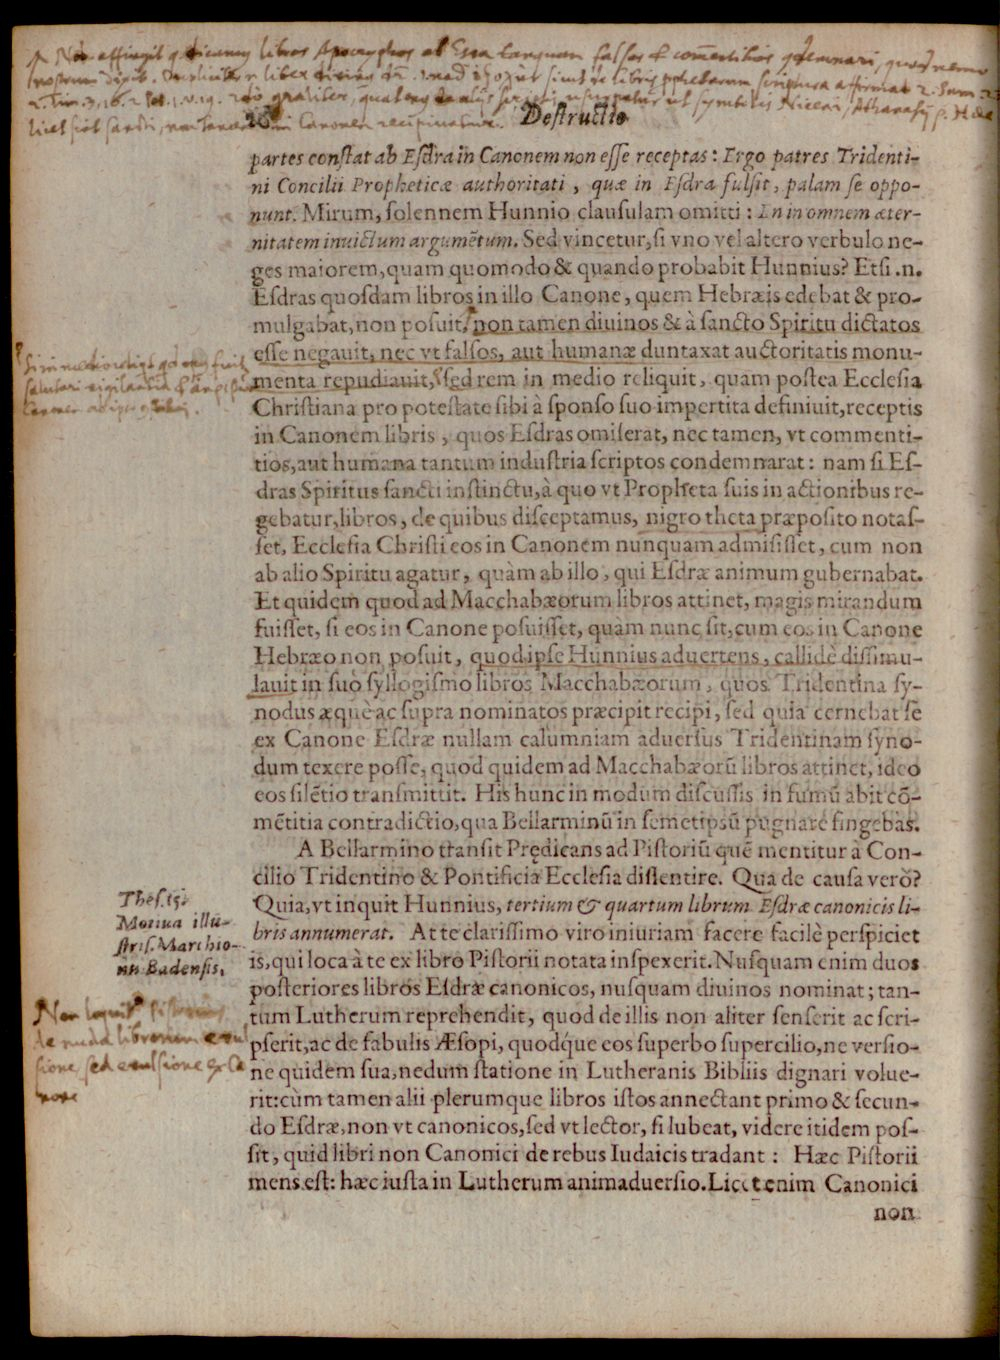 26 Destructio
partes constat ab Esdra in Canonem non esse receptas: Ergo patres Tridenti-
ni Concilii Propheticæ authoritati, quæ in Esdra fulsit, palam se oppo-
nunt. Mirum, solennem Hunnio clausulam omitti: En in omnem æter-
nitatem inuictum argumẽtum. Sed vincetur, si vno vel altero verbulo ne-
ges maiorem, quam quomodo & quando probabit Hunnius? Etsi .n.
Esdras quosdam libros in illo Canone, quem Hebræis edebat & pro-
mulgabat, non posuit, non tamen diuinos & à sancto Spiritu dictatos
esse negauit, nec vt falsos, aut humanæ duntaxat auctoritatis monu-
menta repudiauit, sed rem in medio reliquit, quam postea Ecclesia
Christiana pro potestate sibi à sponso suo impertita definiuit, receptis
in Canonem libris, quos Esdras omiserat, nec tamen, vt commenti-
tios, aut humana tantum industria scriptos condemnarat: nam si Es-
dras Spiritus sancti instinctu, à quo vt Propheta suis in actionibus re-
gebatur, libros, de quibus disceptamus, nigro theta præposito notas-
set, Ecclesia Christi eos in Canonem nunquam admisisset, cum non
ab alio Spiritu agatur, quàm ab illo, qui Esdræ animum gubernabat.
Et quidem quod ad Macchabæorum libros attinet, magis mirandum
fuisset, si eos in Canone posuisset, quàm nunc sit, cum eos in Canone
Hebræo non posuit, quod ipse Hunnius aduertens, callidè dissimu-
lauit in suo syllogismo libros Macchabæorum, quos Tridentina sy-
nodus æquè ac supra nominatos præcipit recipi, sed quia cernebat se
ex Canone Esdræ nullam calumniam aduersus Tridentinam syno-
dum texere posse, quod quidem ad Macchabæorũ libros attinet, ideo
eos silẽtio transmittit. His hunc in modum discussis in fumũ abit cõ-
mẽtitia contradictio, qua Bellarminũ in semetipsũ pugnare fingebas.
A Bellarmino transit Prędicans ad Pistoriũ quẽ mentitur à Con-
cilio Tridentino & Pontificia Ecclesia dissentire. Qua de causa verò?
Thes. 15.
Motiua illũ-
stris. Marchio-
nis Badensis.
Quia, vt inquit Hunnius, tertium & quartum librum Esdræ canonicis li-
bris annumerat. At te clarissimo viro iniuriam facere facilè perspiciet
is, qui loca à te ex libro Pistorii notata inspexerit. Nusquam enim duos
posteriores libros Esdræ canonicos, nusquam diuinos nominat; tan-
Non loquitur Pistorius
de nuda librorum
sione, sed
tum Lutherum reprehendit, quod de illis non aliter senserit ac scri-
pserit, ac de fabulis Æsopi, quodq́ue eos superbo supercilio, ne versio-
ne quidem sua, nedum statione in Lutheranis Bibliis dignari volue-
rit: cùm tamen alii plerumque libros istos annectant primo & secun-
do Esdræ, non vt canonicos, sed vt lector, si lubeat, videre itidem pos-
sit, quid libri non Canonici de rebus Iudaicis tradant: Hæc Pistorii
mens est: hæc iusta in Lutherum animaduersio. Licet enim Canonici
non